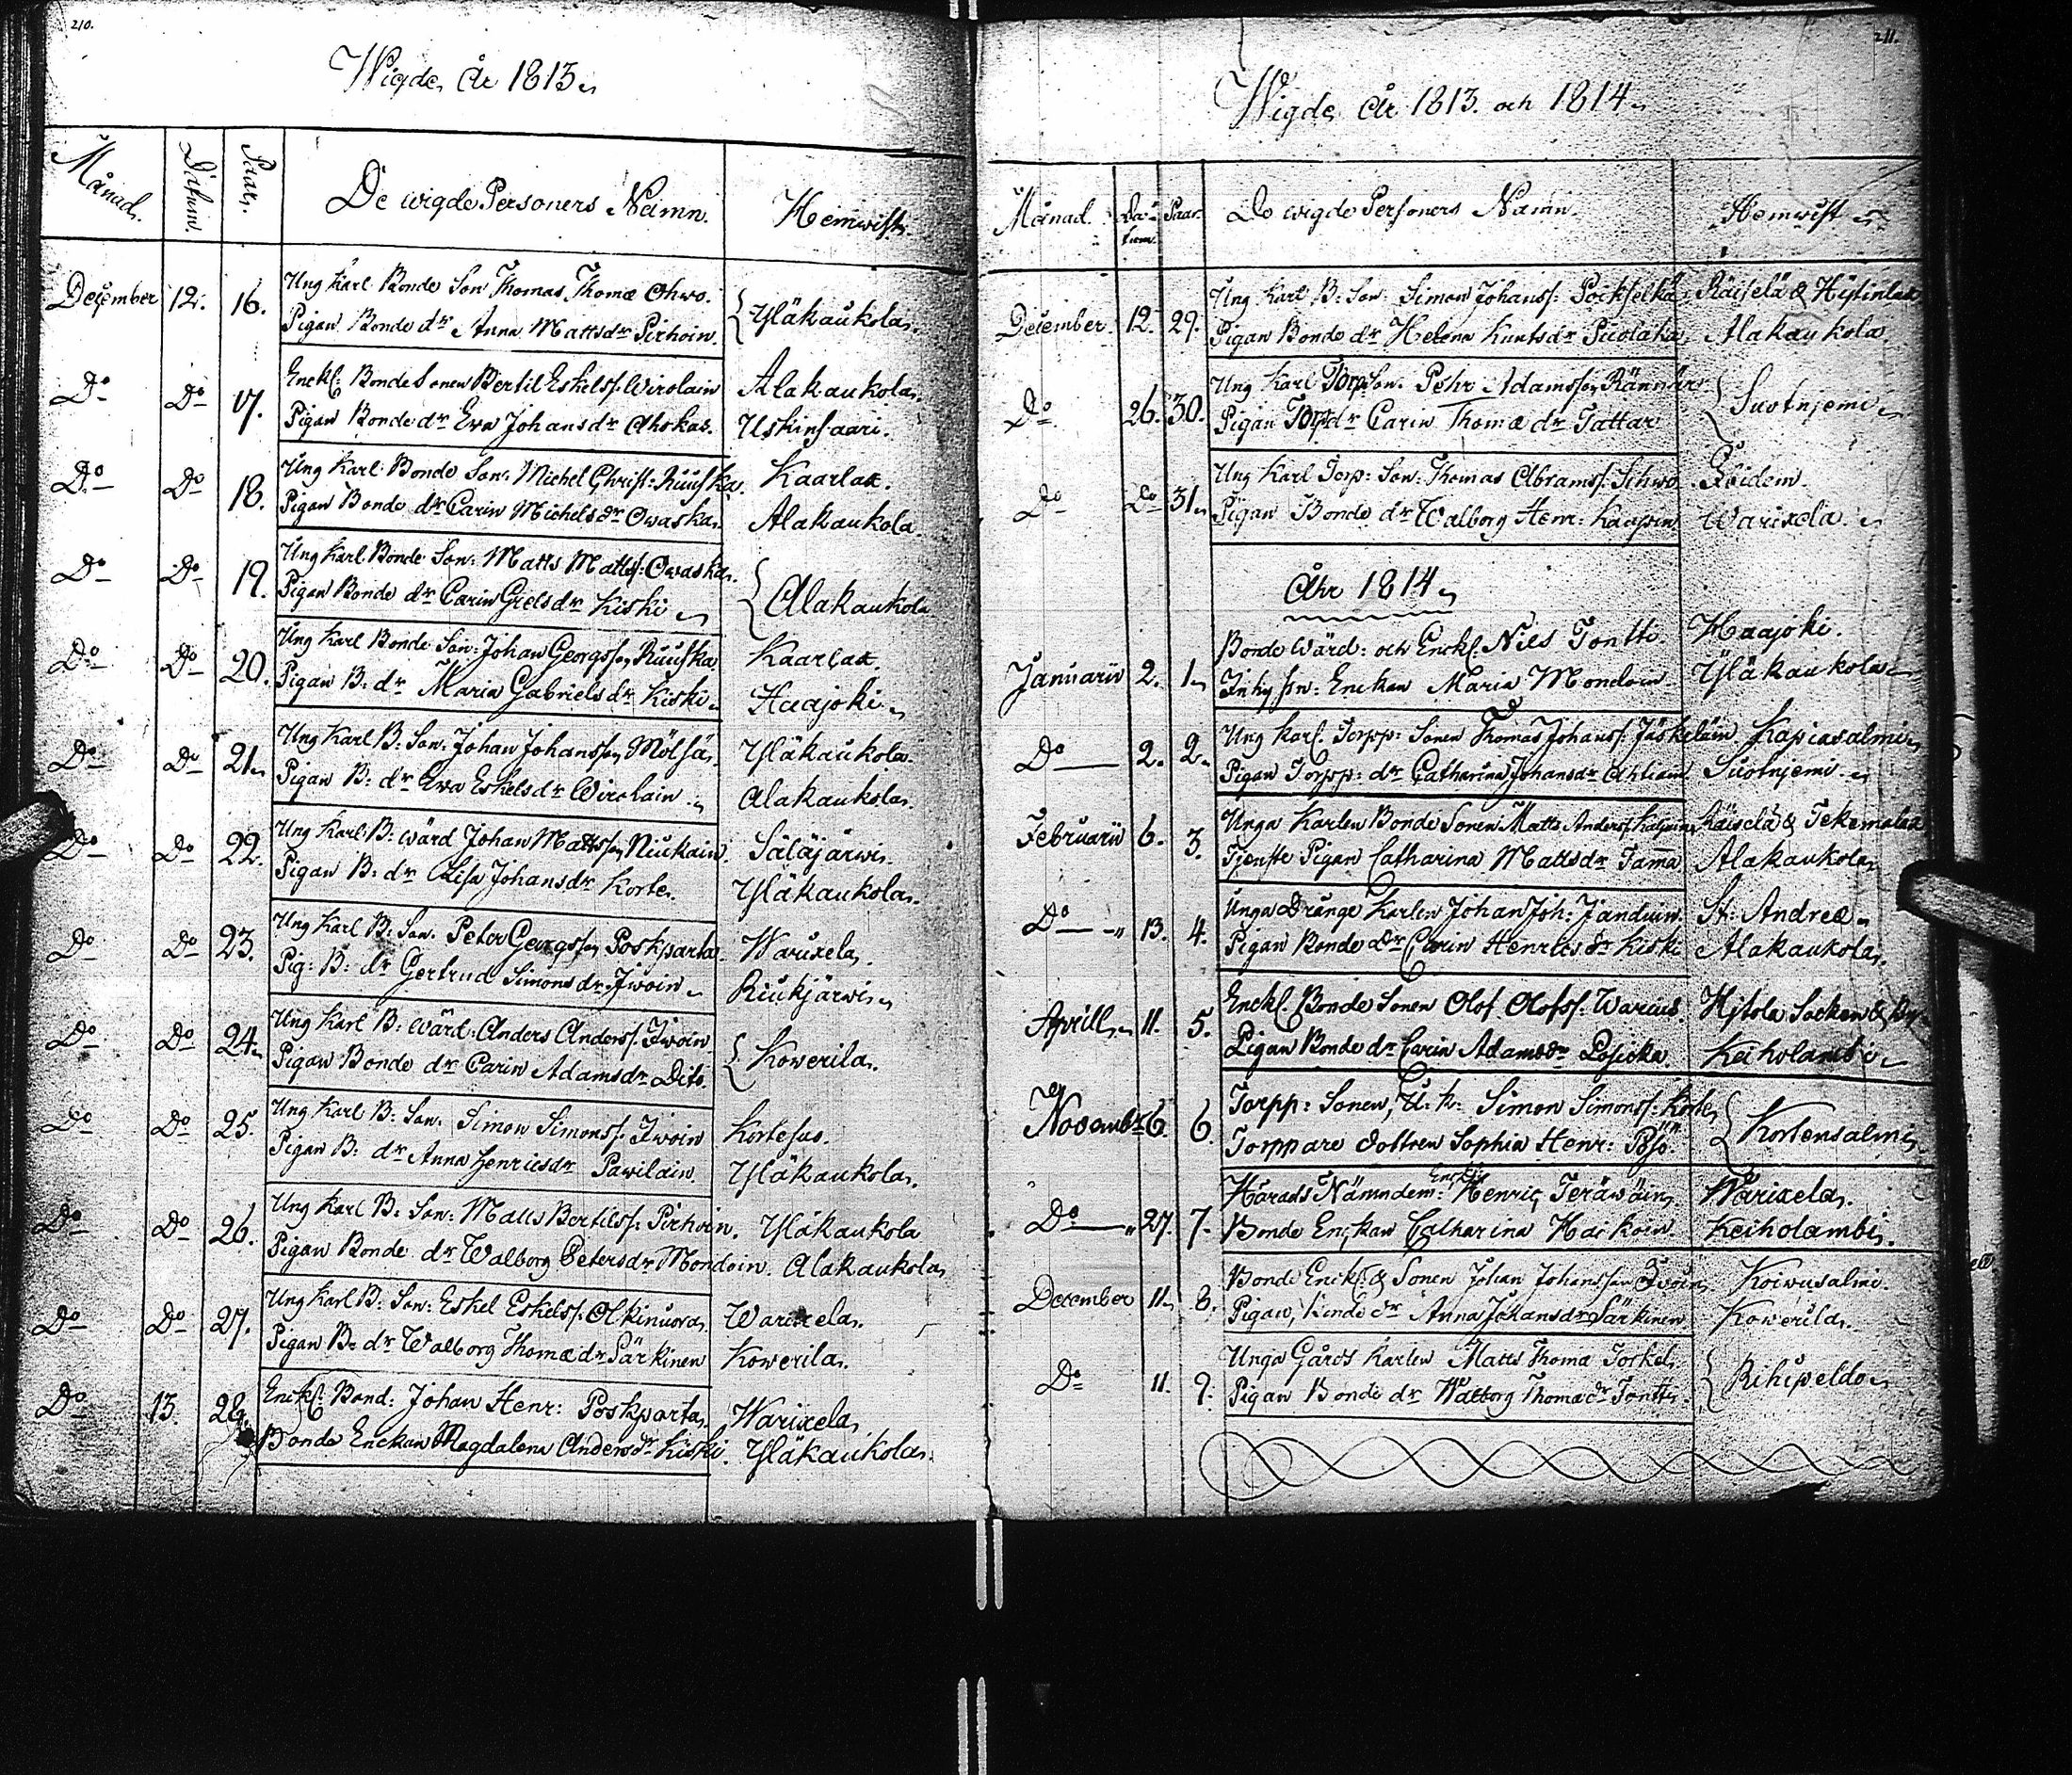 210.
Wigde År 1813
Månad. Datum Paar. De wigde Personers Namn. Hemwist.
December 12. 16. Ung Karl Bonde Son Thomas Thomæ Ohwo.
Pigan Bonde dr Anna Mattsdr Pirhoin. Yläkaukola.
Do Do 17. Enckl: Bonde Sonen Bertil Eskelss. Wirolain Alakaukola.
Pigan Bonde dr Ewa Johansdr Ahokas. Uskinsaari.
Do Do 18. Ung Karl Bonde Son: Michel Christ: Ruuska. Kaarlax.
Pigan Bonde dr Carin Michelsdr Owaska. Alakaukola.
Do Do 19. Ung Karl Bonde Son: Matts Mattss: Owaska.
Pigan Bonde dr Carin Grelsdr Kiski Alakaukola
Do Do 20. Ung Karl Bonde Son: Johan Georgsson Ruuska Kaarlax.
Pigan B: dr Maria Gabrielsdr Kiski Haajoki.
Do Do 21. Ung Karl B: Son: Johan Johansson Mölsä. Yläkaukola.
Pigan B: dr Ewa Eskelsdr Wirolain Alakaukola.
Do Do 22. Ung Karl: B: wärd Johan Mattsson Niukain. Säläjärwi.
Pigan B: dr Lisa Johansdr Korte. Yläkaukola.
Do Do 23. Ung Karl B: Son. Peter Georgsson Poskparta. Warixela.
Pig: B: dr Gertrud Simonsdr Iwoin Riukjärwi.
Do Do 24. Ung Karl B: Wärd: Anders Anderss. Iwoin
Pigan Bonde dr Carin Adamsdr Dito. Kowerila.
Do Do 25. Ung Karl B: Son. Simon Simonss. Iwoin Kortesus.
Pigan B: dr Anna Henricsdr Pawilain. Yläkaukola.
Do Do 26. Ung Karl B: Son: Matts Bertilss. Pirhoin. Yläkaukola
Pigan Bonde dr Walborg Petersdr Mondoin. Alakaukola
Do Do 27. Ung Karl B: Son: Eskel Eskelss. Olkinuora. Warixela.
Pigan B: dr Walborg Thomædr Särkinen Kowerila.
Do 13. 28. Enckl: Bond: Johan Henr: Poskparta. Warixela
Bonde Enckan Magdalena Andersdr Kiski. Yläkaukola.
211.
Wigde År 1813. och 1814
Månad. Datum Paar De wigde Personers Namn. Hemwist
December. 12. 29. Ung Karl B: Son: Simon Johanss: Räiselä &
Pigan Bonde dr Helena Knutsdr Puolaka Alakaukola.
Do 26. 30. Ung Karl Torp Son. Pehr Adamsson Rännär
Pigan Torp dr Carin Thomæ dr Tattar Suotnjemi
Do Do 31. Ung Karl Torp: Son: Thomas Abramss. Ibidem.
Pigan Bonde dr Walborg Henr: Kaapin Warixela.
Åhr 1814
Januarii 2. 1. Bonde Wärd: och Enckl. Nils Tontti Haajoki.
Inhyssn: Enckan Maria Mondoin Yläkaukola
Do 2. 2. Ung Karl. Torpp: Sonen Thomas Johanss. Jäskeläin Kapiasalmi
Pigan Torpp: dr Catharina Johansdr Ahtiain Suotnjemi
Februarii 6. 3. Unga Karlen Bonde Sonen Matts Anderss. Räiselä & Tekemalax
Tjenste Pigan Catharina Mattsdr Tamma Alakaukola
Do 13. 4. Unga Dränge Karlen Johan Joh: St: Andreæ
Pigan Bonde Dr Carin Henricsdr Kiski Alakaukola.
Aprill 11. 5. Enckl. Bonde Sonen Olof Olofss. Warius. Hjtola Socken & By
Pigan Bonde dr Carin Adamsdr Keiholambi
Novembr 6. 6. Torpp: Sonen, U: k: Simon Simonss: Korte
Torppare dottren Sophia Henr: Kortensalmi
Do 27. 7. Härads Nämndem: Encklin Henric Teräwäin Warixela.
Bonde Enckan Catharina Haikoin. Keiholambi.
December 11. 8. Bonde Enckl. & Sonen Johan Johansson Iwoin Koiwusalmi.
Pigan, Bonde dr Anna Johansdr Särkinen Kowerila.
Do 11. 9. Unga Gårds Karlen Matts Thomæ Torkel.
Pigan Bonde dr Walborg Thomædr Tontti. Rihipeldo